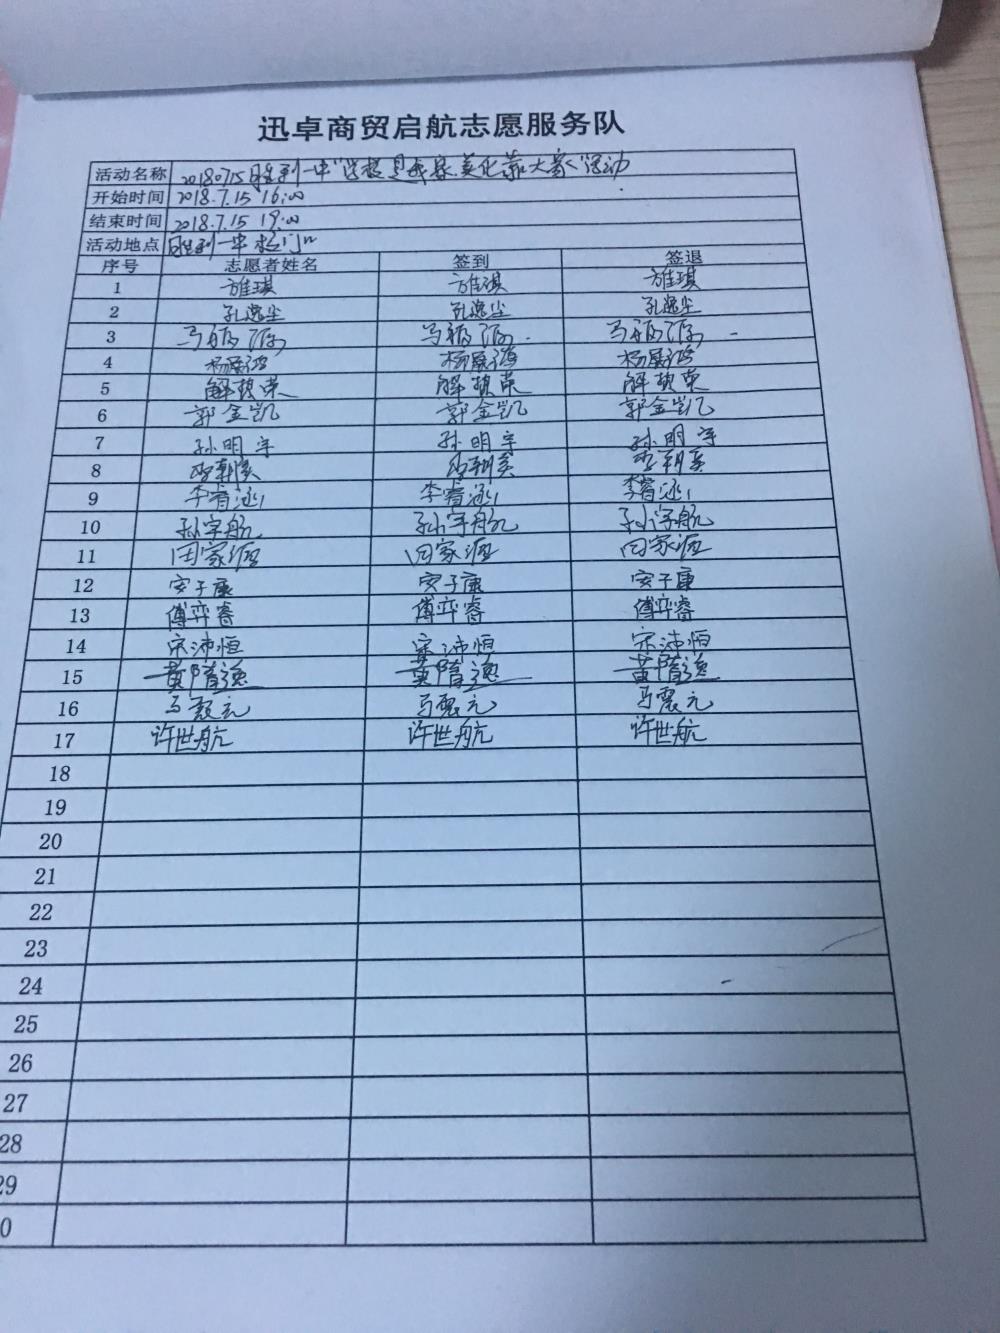 迅卓商贸启航志愿服务队
活动名称 20180715胜利一中"学校是我家,美化靠大家"活动
开始时间 2018.7.15 16:00
结束时间 2018.7.15 19:00
活动地点 胜利一中校门口
序号 志愿者姓名 签到 签退
1 方维琪 方维琪 方维琪
2 孔逸尘 孔逸尘 孔逸尘
3 马
4 杨展鸿
5 解 荣 解 荣 解 荣
6 郭金凯 郭金凯 郭金凯
7 孙明宇 孙明宇 孙明宇
8
9 李睿涵 李睿涵 李睿涵
10 孙宇航 孙宇航 孙宇航
11 田家源 田家源 田家源
12 安子康 安子康 安子康
13 傅弈睿 傅弈睿 傅弈睿
14 宋沛恒 宋沛恒 宋沛恒
15 黄隋逸 黄隋逸 黄隋逸
16 马震元 马震元 马震元
17 许世航 许世航 许世航
18
19
20
21
22
23
24
25
26
27
28
29
0